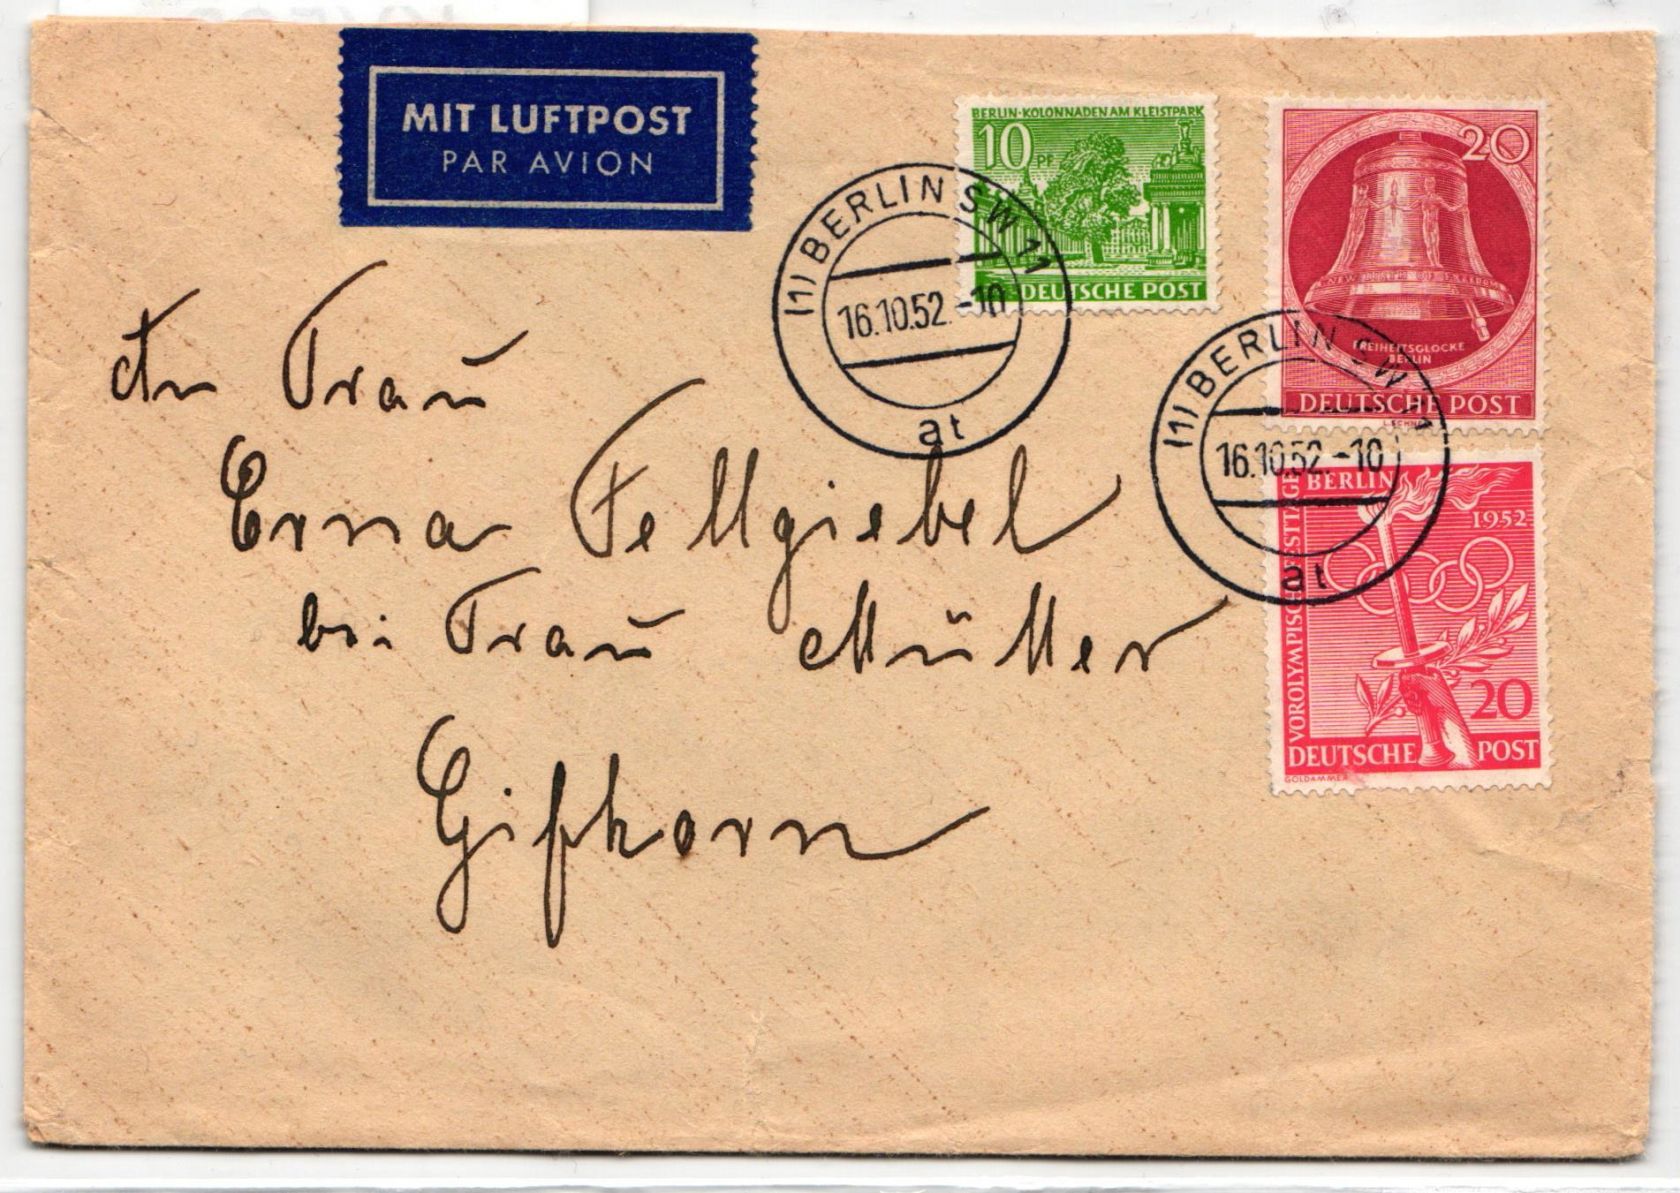 MIT LUFTPOST
PAR AVION
BERLIN·KOLONNADEN AM KLEISTPARK
10 PF
DEUTSCHE POST
(1) BERLIN SW 11
16.10.52.-10
at
20
FREIHEITSGLOCKE
BERLIN
DEUTSCHE POST
(1) BERLIN SW 11
16.10.52.-10
at
BERLIN
1952
VOROLYMPISCHE FESTTAGE
20
DEUTSCHE POST
GOLDAMMER
An Frau
Erna Fellgiebel
bei Frau Müller
Gifhorn